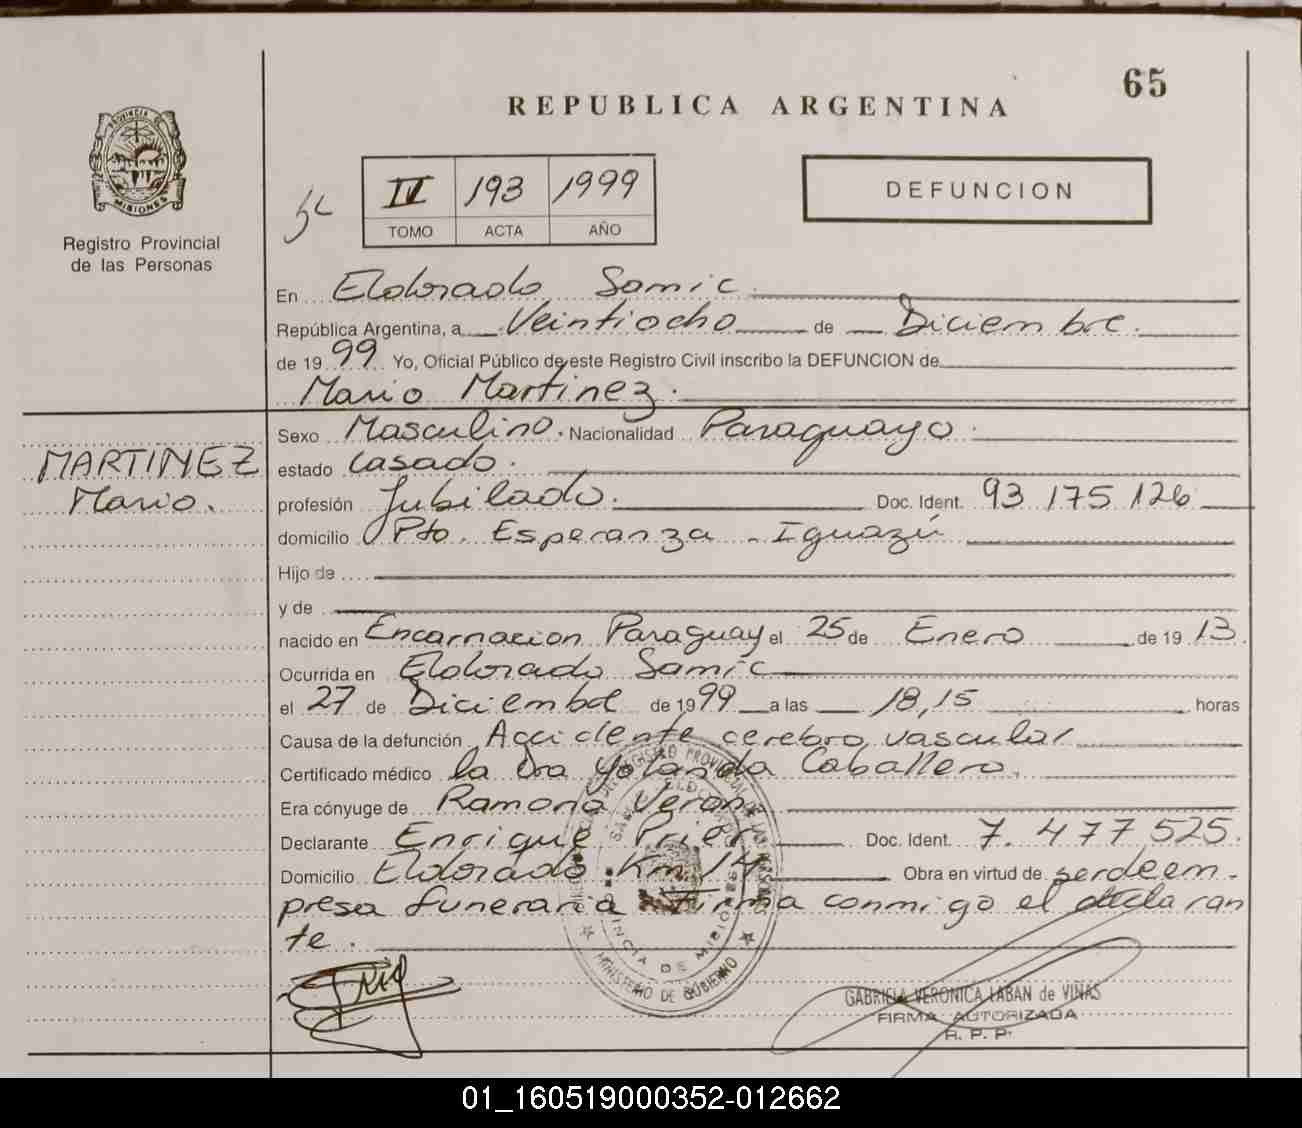 65
REPUBLICA ARGENTINA
PROVINCIA D
MISIONES
Registro Provincial
de las Personas
IV 193 1999
TOMO ACTA AÑO
DEFUNCION
En Eldorado Samic
República Argentina, a Veintiocho de Diciembre.
de 19 99 Yo, Oficial Público de este Registro Civil inscribo la DEFUNCION de
Mario Martinez.
MARTINEZ
Mario.
Sexo Masculino. Nacionalidad Paraguayo.
estado Casado.
profesión Jubilado. Doc. Ident. 93 175 126
domicilio Pto. Esperanza - Iguazú
Hijo de
y de
nacido en Encarnacion Paraguay el 25 de Enero de 19 13.
Ocurrida en Eldorado Samic
el 27 de Diciembre de 19 99 a las 18,15 horas
Causa de la defunción Accidente cerebro vascular
Certificado médico la Dra Yolanda Caballero.
Era cónyuge de Ramona Veron
Declarante Enrique Prier Doc. Ident. 7.477525.
Domicilio Eldorado Km. 14 Obra en virtud de serdeem-
presa funeraria Firma conmigo el declaran
te.
MINISTERIO DE GOBIERNO
GABRIELA VERONICA LABAN de VIÑAS
FIRMA AUTORIZADA
R. P. P.
01_160519000352-012662